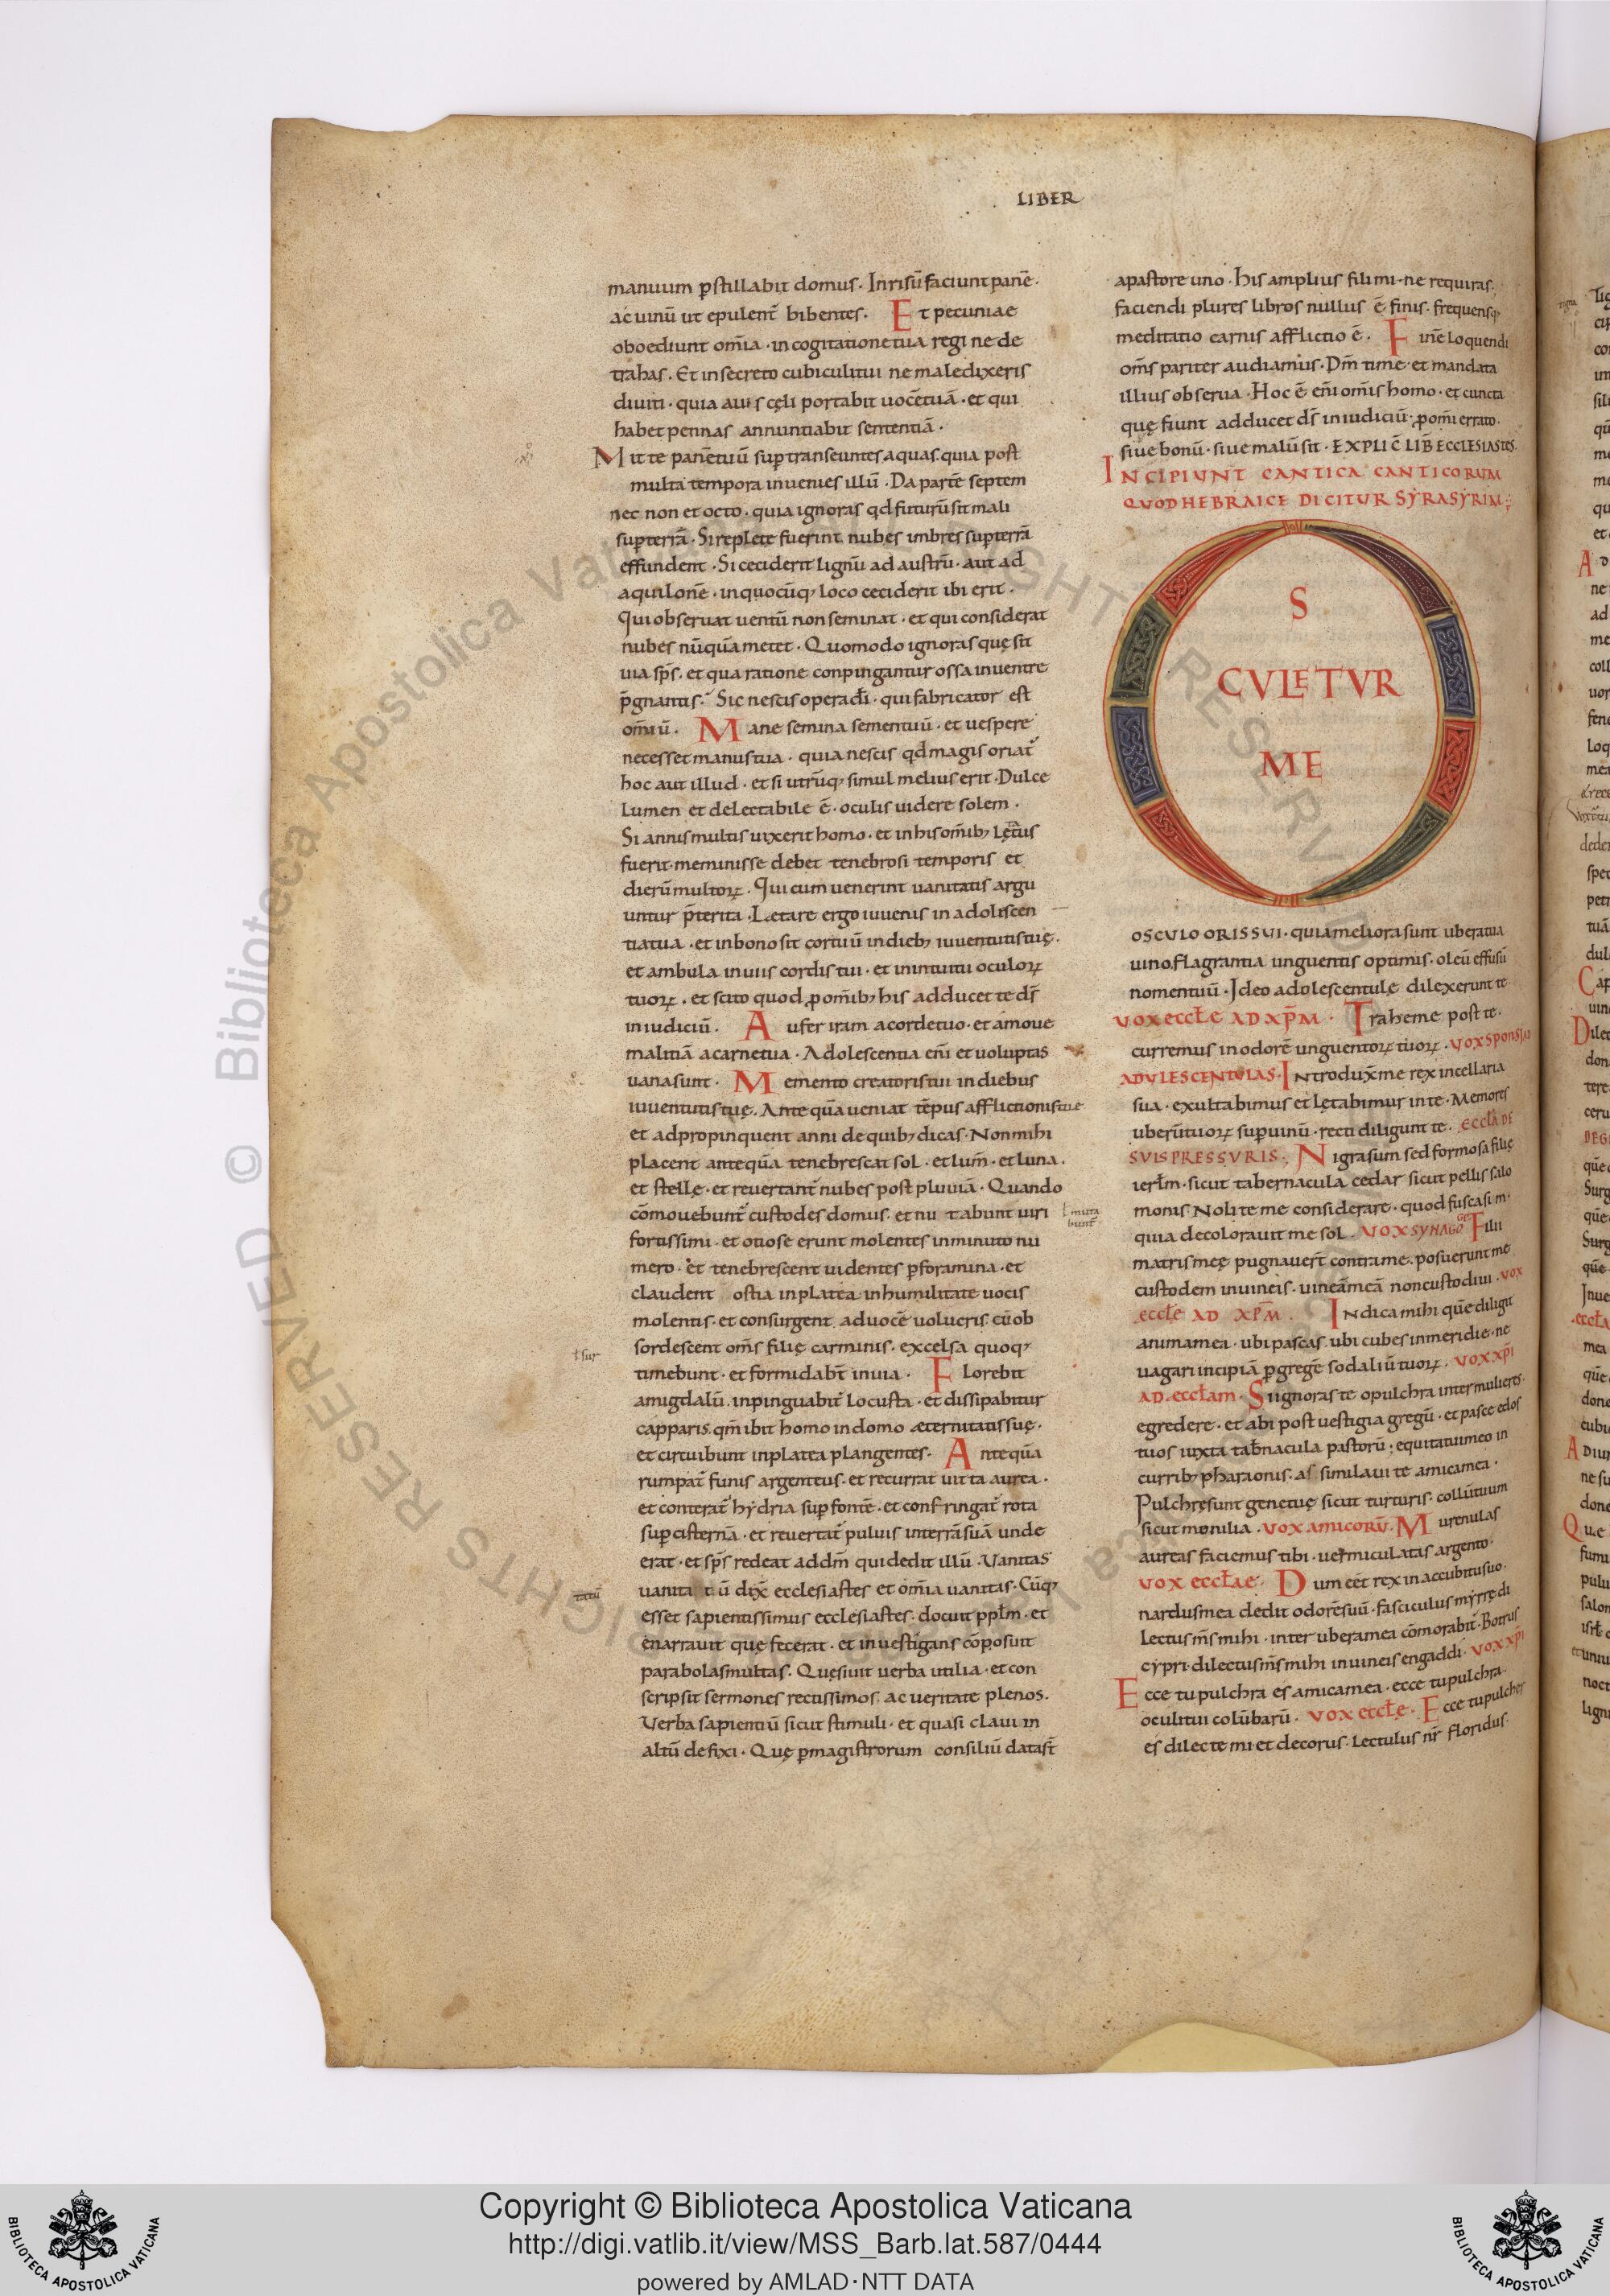 LIBER
manuum pstillabit domus · Inrisū faciunt panē ·
ac uinū ut epulent̄ bibentes · Et pecuniae
oboediunt om̄ia · in cogitatione tua regi ne de
trahas · Et in secreto cubiculi tui ne maledixeris
diuiti · quia auis cęli portabit uocē tuā · et qui
habet pennas annuntiabit sententiā ·
Mitte panē tuū sup transeuntes aquas · quia post
multa tempora inuenies illū · Da partē septem
nec non et octo · quia ignoras qd futurū sit mali
sup terrā · Si replete fuerint nubes imbres sup terrā
effundent · Si ceciderit lignū ad austrū · aut ad
aquilonē · in quocūq; loco ceciderit ibi erit ·
Qui obseruat uentū non seminat · et qui considerat
nubes nūquā metet · Quomodo ignoras quę sit
uia sp̄s · et qua ratione conpingantur ossa in uentre
p̄gnantis · Sic nescis opera dī · qui fabricator est
om̄iū · Mane semina sementiuū · et uespere
ne cesset manus tua · quia nescis qd magis oriat̄
hoc aut illud · et si utrūq; simul melius erit · Dulce
lumen et delectabile ē · oculis uidere solem ·
Si annis multis uixerit homo · et in his om̄ib; lętatus
fuerit · meminisse debet tenebrosi temporis et
dierū multoꝝ · Qui cum uenerint uanitatis argu
untur p̄terita · Laetare ergo iuuenis in adoliscen
tia tua · et in bono sit cor tuū in dieb; iuuentutis tuę ·
et ambula in uiis cordis tui · et in intuitu oculoꝝ
tuoꝝ · et scito quod p om̄ib; his adducet te ds̄
in iudiciū · Aufer iram a corde tuo · et amoue
malitiā a carne tua · Adolescentia en̄i et uoluptas
uana sunt · Memento creatoris tui in diebus
iuuentutis tuę · Ante quā ueniat tēpus afflictionis tue
et adpropinquent anni de quib; dicas · Non mihi
placent antequā tenebrescat sol · et lum̄ · et luna ·
et stellę · et reuertant̄ nubes post pluuiā · Quando
cōmouebunt̄ custodes domus · et nu tabunt uiri
ł muta
bunt̄
fortissimi · et otiose erunt molentes in minuto nu
mero · et tenebrescent uidentes p foramina · et
claudent ostia in platea in humilitate uocis
molentis · et consurgent ad uocē uolucris · et ob
ł sur
sordescent om̄s filię carminis · excelsa quoq;
timebunt · et formidabt̄ in uia · Florebit
amigdalū · inpinguabit̄ locusta · et dissipabitur
capparis · qm̄ ibit homo in domo aeternitatis suę ·
et circuibunt in platea plangentes · Antequā
rumpat̄ funis argenteus · et recurrat uitta aurea ·
et conterat̄ hẏdria sup fontē · et confringat̄ rota
sup cisternā · et reuertat̄ puluis in terrā suā unde
erat · et sp̄s redeat ad dm̄ qui dedit illū · Vanitas
tatū
uanita t ū dix̄ ecclesiastes et om̄ia uanitas · Cūq;
esset sapientissimus ecclesiastes · docuit pplm̄ · et
enarrauit quę fecerat · et inuestigans cōposuit
parabolas multas · Quęsiuit uerba utilia · et con
scripsit sermones rectissimos · ac ueritate plenos ·
Verba sapientiū sicut stimuli · et quasi claui in
altū defixi · Quę p magistrorum consiliū data st̄
a pastore uno · His amplius fili mi · ne requiras ·
faciendi plures libros nullus ē finis · frequensq;
meditatio carnis afflictio ē · Finē loquendi
om̄s pariter audiamus · Dm̄ time · et mandata
illius obserua · Hoc ē en̄i om̄is homo · et cuncta
quę fiunt adducet ds̄ in iudiciū · p om̄i errato ·
siue bonū · siue malū sit · EXPLIC̄ LIB̄ ECCLESIASTES ·
INCIPIUNT CANTICA CANTICORUM
QUOD HEBRAICE DICITUR SẎRASẎRIM ;
O
S
CVLETVR
ME
OSCULO ORIS SUI · quia meliora sunt ubera tua
uino flagrantia unguentis optimis · oleū effusū
nomen tuū · Ideo adulescentulę dilexerunt te
VOX ECCŁE AD XP̄M · Trahe me post te ·
curremus in odorē unguentoꝝ tuoꝝ · VOX SPONSI AD
ADVLESCENTULAS · Introdux̄ me rex in cellaria
sua · exultabimus et lętabimur in te · Memores
uberū tuoꝝ sup uinū · recti diligunt te · ECCLA DE
SVIS PRESSVRIS ; Nigra sum sed formosa filię
ierłm · sicut tabernacula cedar sicut pellis salo
monis · Nolite me considerare · quod fusca sim ·
quia decolorauit me sol · VOX SYNAGOGE Filii
matris meę pugnauer̄t contra me · posuerunt me
custodem in uineis · uineā meā non custodiui · VOX
ECCŁE AD XP̄M · Indica mihi quē diligit
anima mea · ubi pascas · ubi cubes in meridie · ne
uagari incipiā p gregē sodaliū tuoꝝ · VOX XP̄I
AD ECCŁAM · Si ignoras te o pulchra inter mulieres ·
egredere · et abi post uestigia gregū · et pasce edos
tuos iuxta tab̄nacula pastorū ; equitatui meo in
currib; pharaonis · assimilaui te amica mea ·
Pulchrę sunt genę tuę sicut turturis · collū tuum
sicut monilia · VOX AMICORŪ · Murenulas
aureas faciemus tibi · uermiculatas argento ·
VOX ECCŁAE · Dum eet̄ rex in accubitu suo ·
nardus mea dedit odorē suū · fasciculus mẏrrę di
lectus m̄s mihi · inter ubera mea cōmorabit̄ · Botrus
cẏpri · dilectus m̄s mihi in uineis engaddi · VOX XP̄I
Ecce tu pulchra es amica mea · ecce tu pulchra ·
oculi tui colūbarū · VOX ECCŁĘ · Ecce tu pulcher
es dilecte mi et decorus · Lectulus nr̄ floridus ·
© Biblioteca Apostolica Vaticana
RIGHTS RESERVED
Copyright © Biblioteca Apostolica Vaticana
http://digi.vatlib.it/view/MSS_Barb.lat.587/0444
powered by AMLAD·NTT DATA
BIBLIOTECA APOSTOLICA VATICANA
BIBLIOTECA APOSTOLICA VATICANA